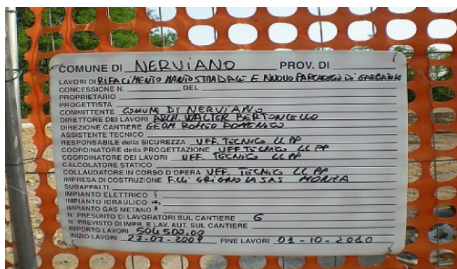 COMUNE DI NERVIANO PROV. DI
LAVORI DI RIFACIMENTO MANTO STRADALE E NUOVO PARCHEGGIO DI
CONCESSIONE N. DEL
PROPRIETARIO
PROGETTISTA
COMMITTENTE COMUNE DI NERVIANO
DIRETTORE DEI LAVORI ARCH. WALTER BERTONCELLO
DIREZIONE CANTIERE GEOM ROMEO DOMENICO
ASSISTENTE TECNICO
RESPONSABILE della SICUREZZA UFF. TECNICO LL PP
COORDINATORE della PROGETTAZIONE UFF TECNICO LL PP
COORDINATORE DEI LAVORI UFF. TECNICO LL PP
CALCOLATORE STATICO
COLLAUDATORE IN CORSO D'OPERA UFF. TECNICO LL PP
IMPRESA DI COSTRUZIONE F.lli SAS MONZA
SUBAPPALTI
IMPIANTO ELETTRICO
IMPIANTO IDRAULICO
IMPIANTO GAS METANO
N. PRESUNTO DI LAVORATORI SUL CANTIERE 6
N. PREVISTO DI IMPR. E LAV. AUT. SUL CANTIERE
IMPORTO LAVORI 504.500.00
INIZIO LAVORI 27-07-2009 FINE LAVORI 01-10-2010